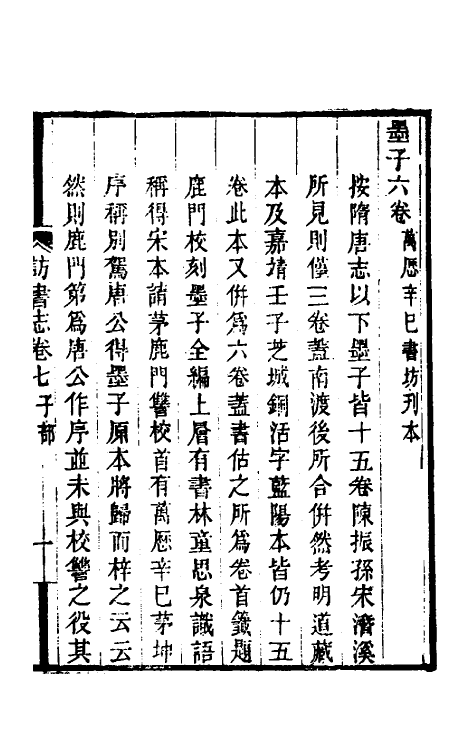 墨子六卷 萬厯辛巳書坊刊本
按隋唐志以下墨子皆十五卷陳振孫宋濳溪
所見則僅三卷蓋南渡後所合併然考明道藏
本及嘉靖壬子芝城銅活字藍陽本皆仍十五
卷此本又併爲六卷蓋書估之所爲卷首籖題
鹿門校刻墨子全編上層有書林童思泉識語
稱得宋本請茅鹿門讐校首有萬厯辛巳茅坤
序稱別駕唐公得墨子原本將歸而梓之云云
然則鹿門第爲唐公作序並未與校讐之役其
訪書志卷七子部 十一